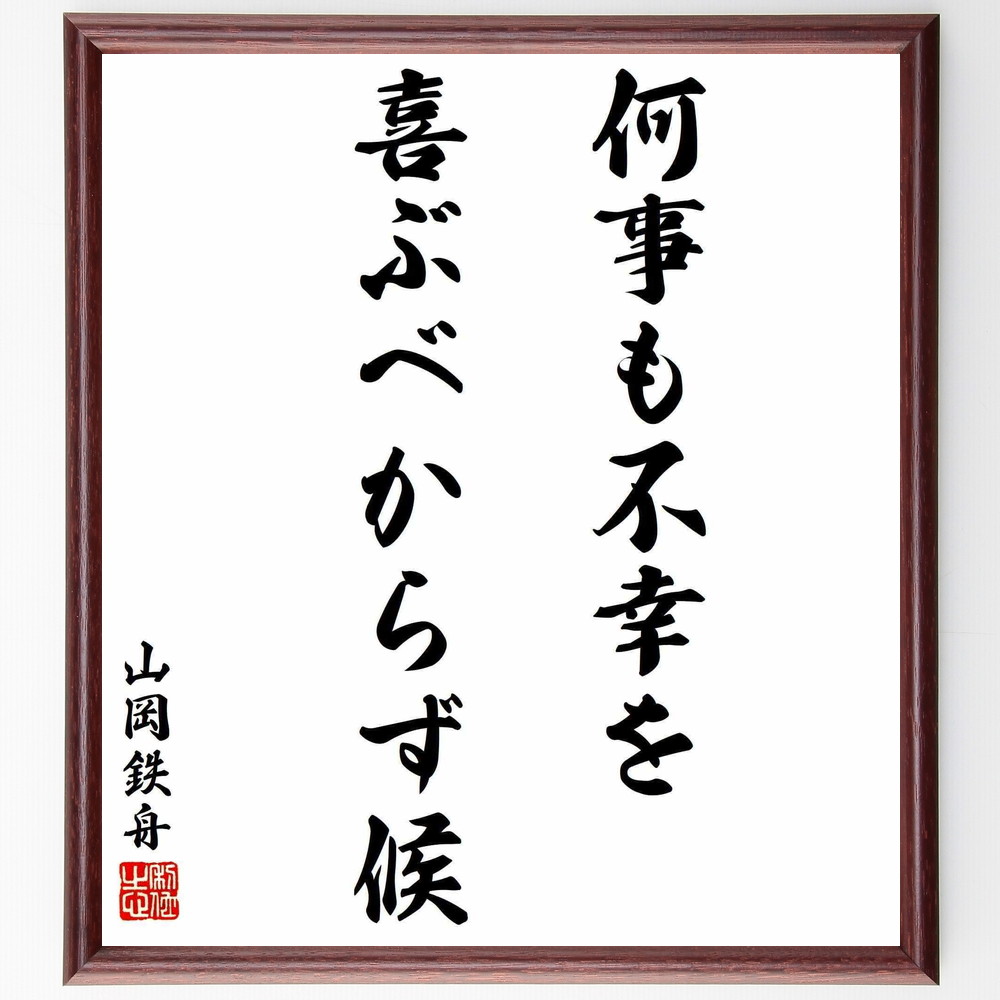 何事も不幸を
喜ぶべからず候
山岡鉄舟